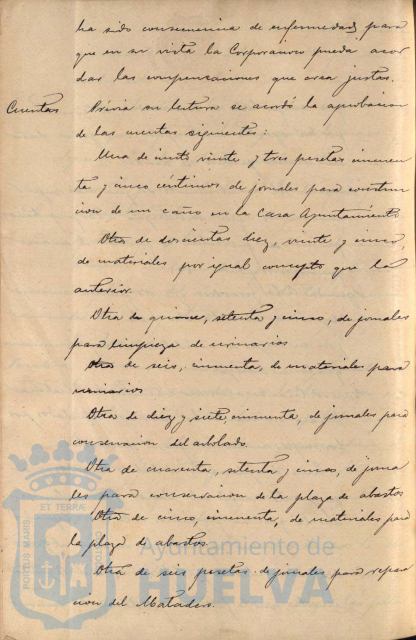 ha sido consecuencia de enfermedad, para
que en su vista la Corporacion pueda acor
dar las compensaciones que crea justas.
Cuentas Prévia su lectura se acordó la aprobacion
de las cuentas siguientes:
Una de ciento veinte y tres pesetas cincuen
ta y cinco céntimos de jornales para construc
cion de un caño en la Casa Ayuntamiento
Otra de doscientas diez, veinte y cinco,
de materiales por igual concepto que la
anterior.
Otra de quince, setenta y cinco, de jornales
para limpieza de urinarios
Otra de seis, cincuenta, de materiales para
urinarios
Otra de diez y siete, cincuenta, de jornales para
conservacion del arbolado.
Otra de cuarenta, setenta y cinco, de jorna
les para conservacion de la plaza de abastos
Otra de cinco, cincuenta, de materiales para
la plaza de abastos.
Otra de seis pesetas de jornales para repara
cion del Matadero.
PORTUS MARIS
ET TERRÆ
Ayuntamiento de
HUELVA